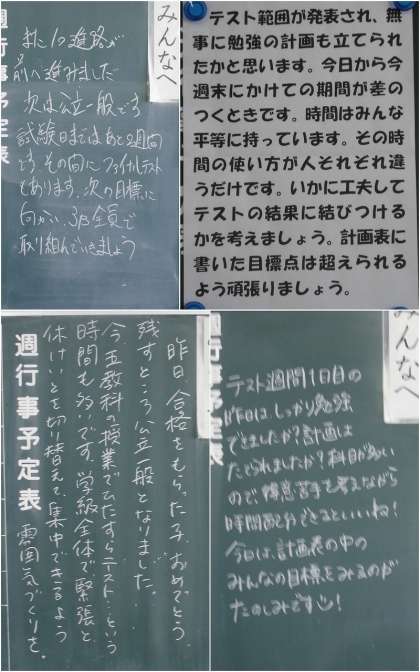 みんなへ
また1つ進路が
前へ進みました
次は公立一般です
試験日まではあと2週間
です その間にファイナルテスト
もあります。次の目標に
向かい、3B全員で
取り組んでいきましょう
週行事予定表
テスト範囲が発表され、無
事に勉強の計画も立てられ
たかと思います。今日から今
週末にかけての期間が差の
つくときです。時間はみんな
平等に持っています。その時
間の使い方が人それぞれ違
うだけです。いかに工夫して
テストの結果に結びつける
かを考えましょう。計画表に
書いた目標点は超えられる
よう頑張りましょう。
昨日、合格をもらった子、おめでとう。
残すところ公立一般となりました。
今、五教科の授業でひたすらテスト…という
時間も多いです。学級全体で緊張と
休けいとを切り替えて、集中できるよう
雰囲気づくりを。
週行事予定表
みんなへ
テスト週間1日目の
昨日は、しっかり勉強
できましたか?計画は
たてられましたか?科目が多い
ので、得意苦手を考えながら
時間配分できるといいね!
今日は、計画表の中の
みんなの目標をみるのが
たのしみです!
行事予定表